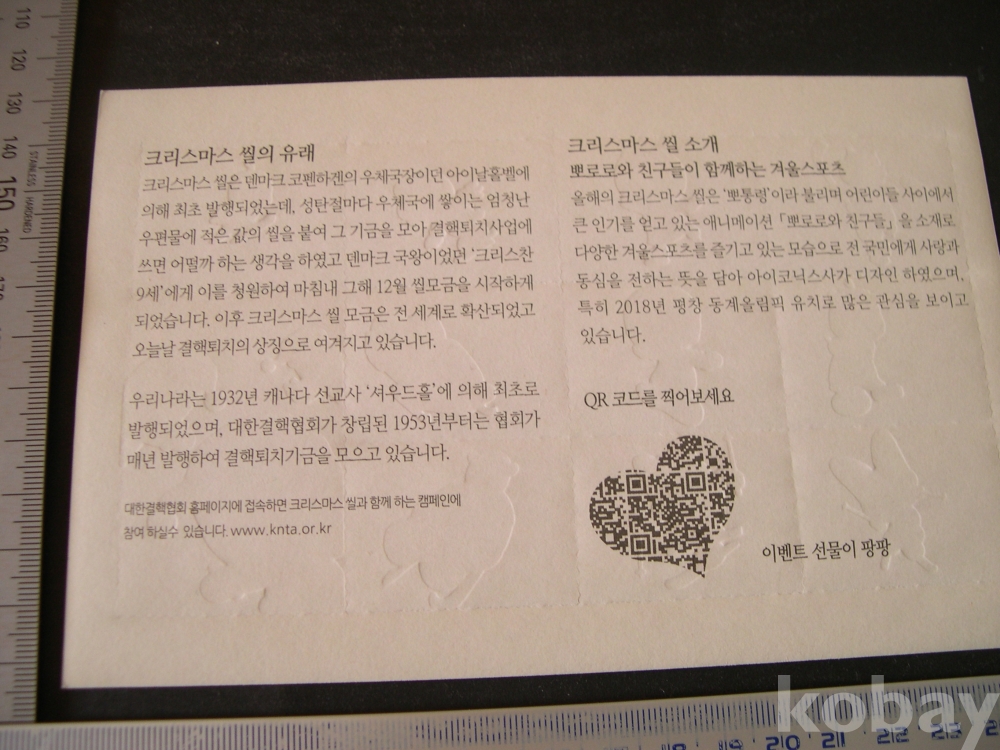 크리스마스 씰의 유래
크리스마스 씰은 덴마크 코펜하겐의 우체국장이던 아이날홀벨에
의해 최초 발행되었는데, 성탄절마다 우체국에 쌓이는 엄청난
우편물에 적은 값의 씰을 붙여 그 기금을 모아 결핵퇴치사업에
쓰면 어떨까 하는 생각을 하였고 덴마크 국왕이었던 ‘크리스찬
9세’에게 이를 청원하여 마침내 그해 12월 씰모금을 시작하게
되었습니다. 이후 크리스마스 씰 모금은 전 세계로 확산되었고
오늘날 결핵퇴치의 상징으로 여겨지고 있습니다.
우리나라는 1932년 캐나다 선교사 ‘셔우드홀’에 의해 최초로
발행되었으며, 대한결핵협회가 창립된 1953년부터는 협회가
매년 발행하여 결핵퇴치기금을 모으고 있습니다.
대한결핵협회 홈페이지에 접속하면 크리스마스 씰과 함께 하는 캠페인에
참여 하실수 있습니다. www.knta.or.kr
크리스마스 씰 소개
뽀로로와 친구들이 함께하는 겨울스포츠
올해의 크리스마스 씰은 ‘뽀통령’이라 불리며 어린이들 사이에서
큰 인기를 얻고 있는 애니메이션 「뽀로로와 친구들」을 소재로
다양한 겨울스포츠를 즐기고 있는 모습으로 전 국민에게 사랑과
동심을 전하는 뜻을 담아 아이코닉스사가 디자인 하였으며,
특히 2018년 평창 동계올림픽 유치로 많은 관심을 보이고
있습니다.
QR 코드를 찍어보세요
이벤트 선물이 팡팡
110
120
130
140
150
160
170
STAINLESS HARDENED
kobay
18 19 20 21 22 23